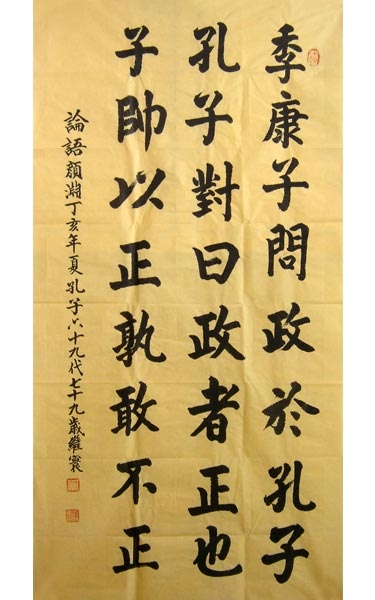 季康子問政於孔子
孔子對曰政者正也
子帥以正孰敢不正
論語顏淵丁亥年夏孔子六十九代七十九歲繼寰